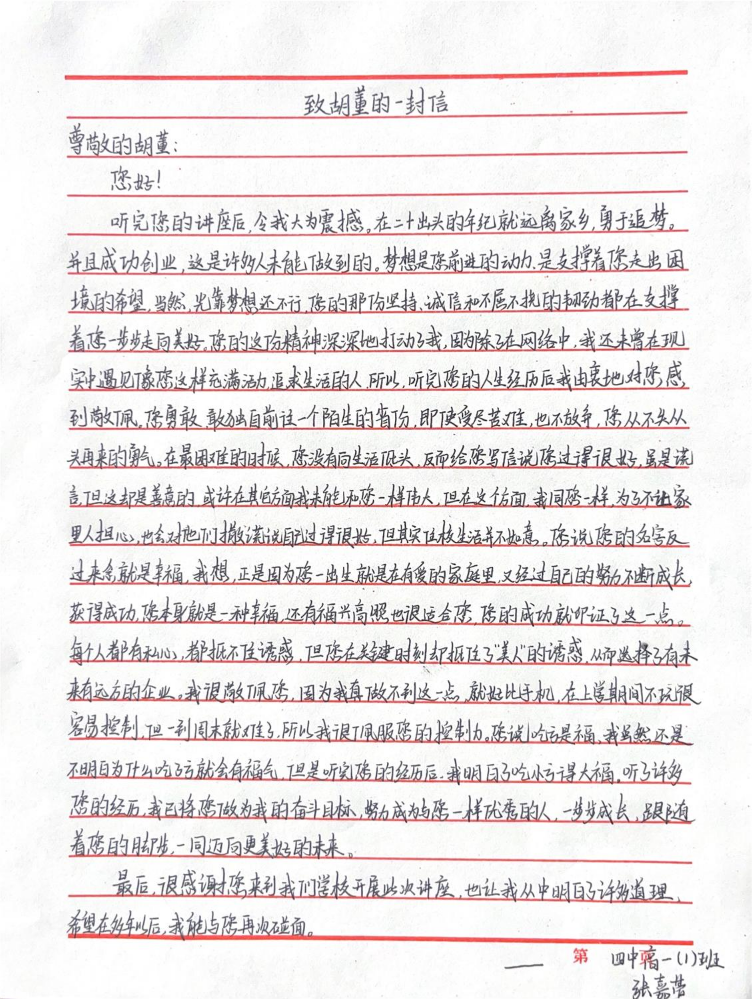 致胡董的一封信
尊敬的胡董：
您好！
听完您的讲座后，令我大为震撼。在二十出头的年纪就远离家乡，勇于追梦。
并且成功创业，这是许多人未能做到的。梦想是您前进的动力，是支撑着您走出困
境的希望，当然，光靠梦想还不行，您的那份坚持、诚信和不屈不挠的韧劲都在支撑
着您一步步走向美好。您的这份精神深深地打动了我，因为除了在网络中，我还未曾在现
实中遇见像您这样充满活力，追求生活的人，所以，听完您的人生经历后我由衷地对您感
到敬佩。您勇敢，敢独自前往一个陌生的省份，即使受尽苦难，也不放弃，您从不失从
头再来的勇气。在最困难的时候，您没有向生活低头，反而给您写信说您过得很好，虽是谎
言，但这却是善意的，或许在其它方面我未能和您一样伟大，但在这个方面，我同您一样，为了不让家
里人担心，也会对他们撒谎说自己过得很好，但其实住校生活并不如意。您说您的名字反
过来念就是幸福，我想，正是因为您一出生就是在有爱的家庭里，又经过自己的努力不断成长，
获得成功，您本身就是一种幸福，还有福兴高照也很适合您，您的成功就印证了这一点。
每个人都有私心，都抵不住诱惑，但您在关键时刻却抵住了“美人”的诱惑，从而选择了有未
来有远方的企业。我很敬佩您，因为我真做不到这一点，就好比手机，在上学期间不玩很
容易控制，但一到周末就难了，所以我很佩服您的控制力。您说吃亏是福，我虽然还是
不明白为什么吃了亏就会有福气，但是听完您的经历后，我明白了吃小亏得大福。听了许多
您的经历，我已将您做为我的奋斗目标，努力成为与您一样优秀的人，一步步成长，跟随
着您的脚步，一同迈向更美好的未来。
最后，很感谢您来到我们学校开展此次讲座，也让我从中明白了许多道理，
希望在多年以后，我能与您再次碰面。
第 页 四中高一(1)班
张嘉蕾